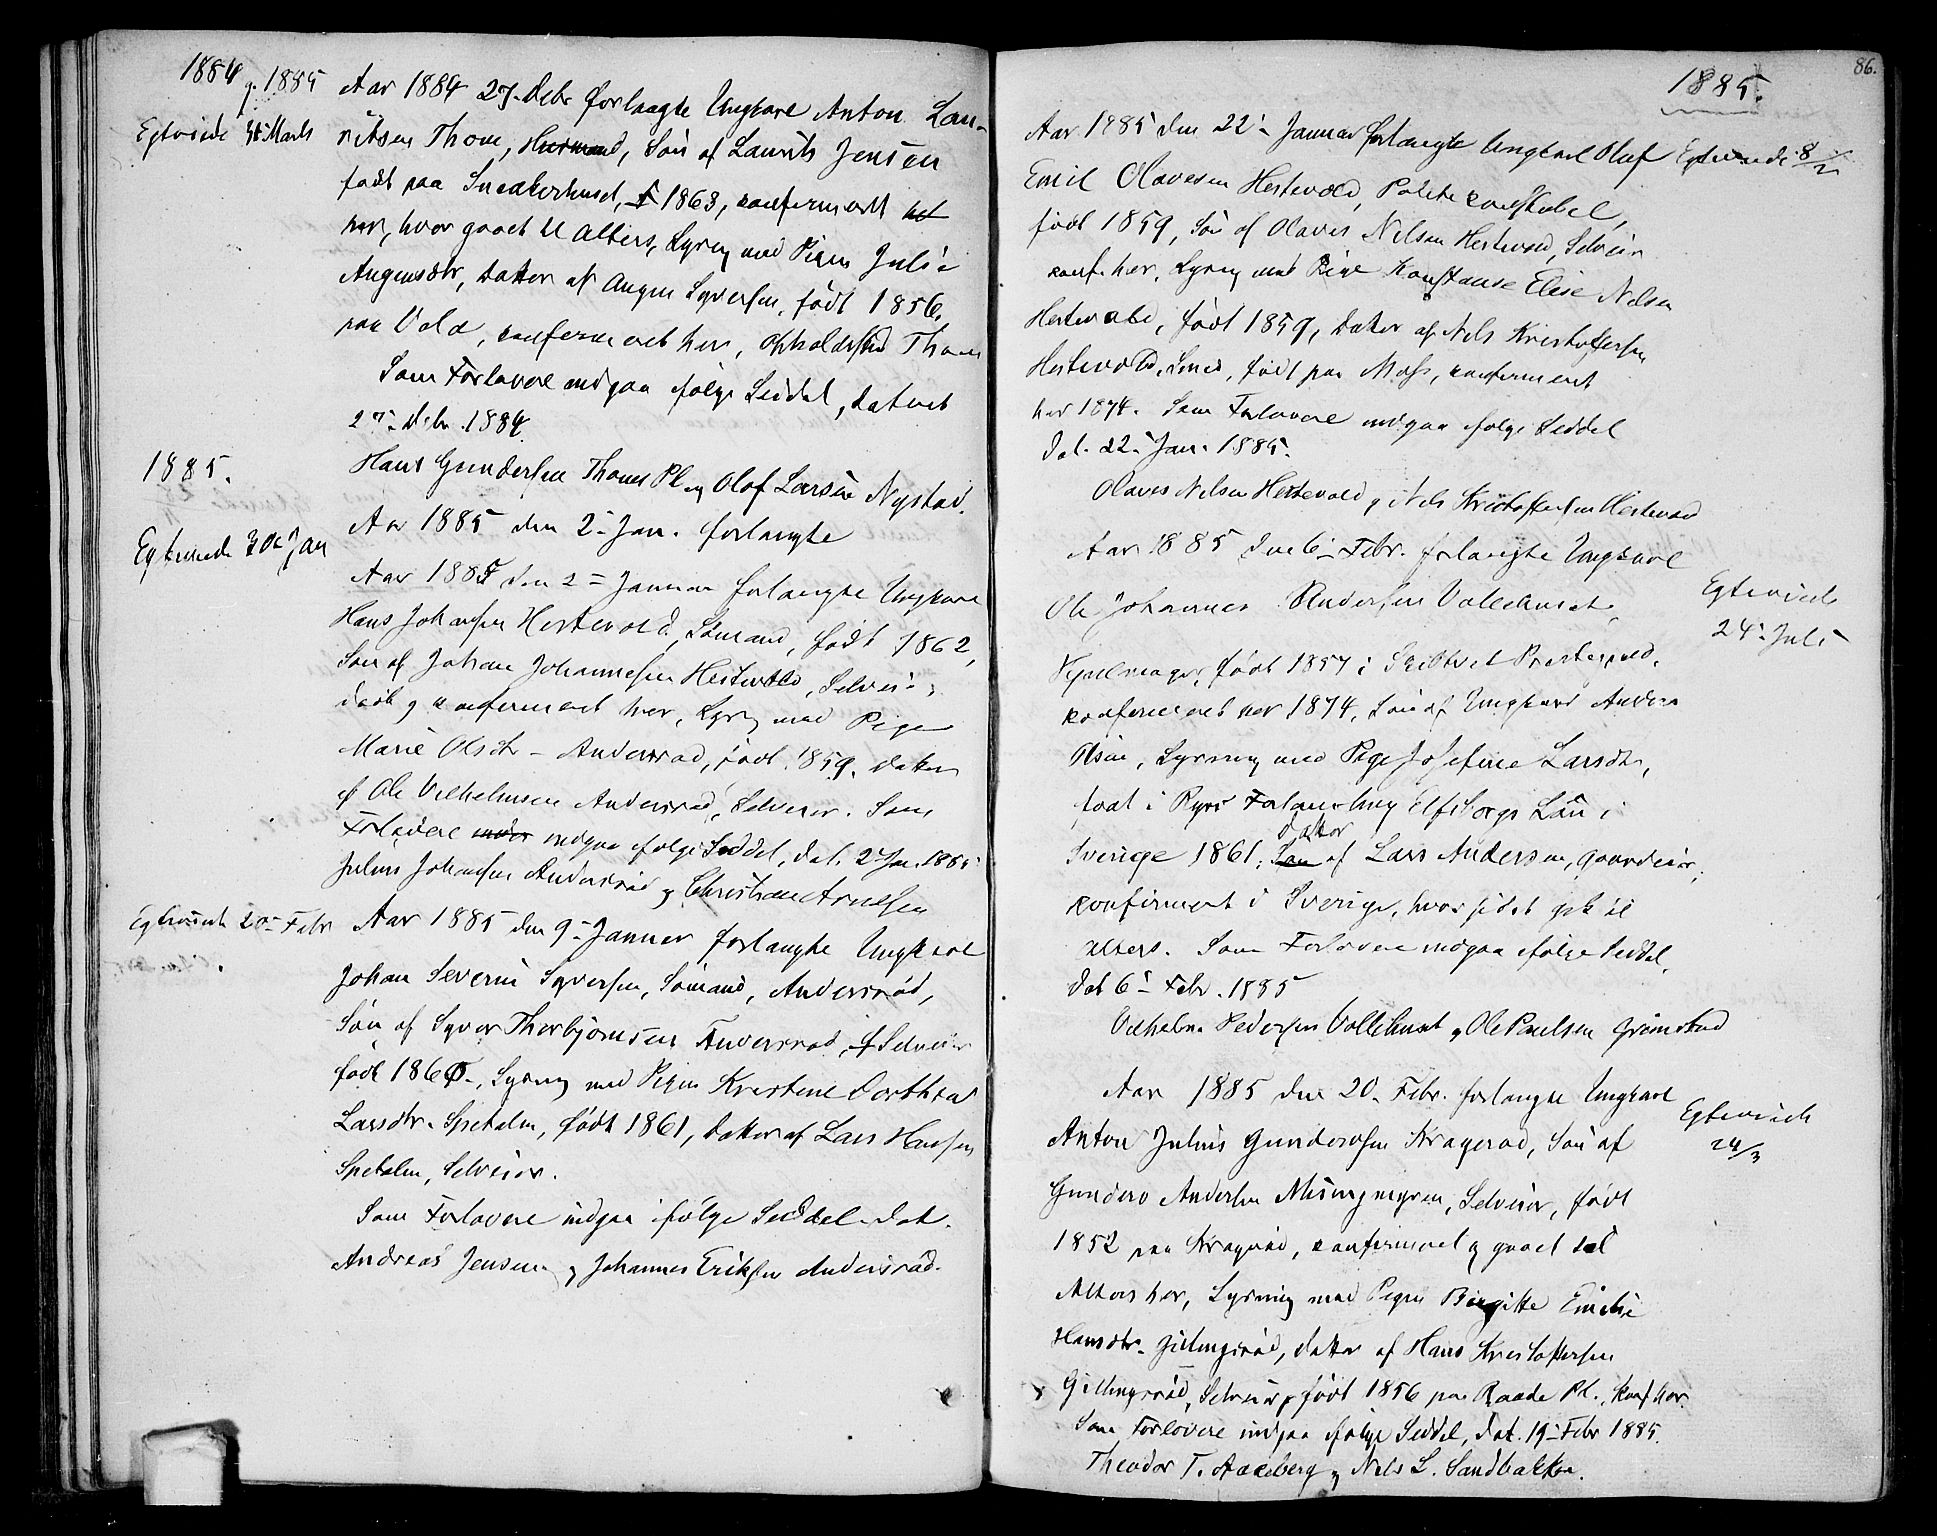 1884 g. 1885
Aar 1884 27. Debr forlangte Ungkarl Anton Lau-
Egteviede Marts
ritsen Thom, Husmand, Sön af Laurits Jensen
födt paa Snedkerhuset, 1863, confirmeret
her, hvor gaaet til Alters, Lysng med Pigen Julie
Augensdtr, Datter af Augen Syversen, födt 1856.
paa Vold, confirmeret her, Opholdssted Thom
Som Forlovere indgaa ifölge Seddel, dateret
27- Debr. 1884.
1885.
Hans Gundersen Thomt Pl. og Olof Larsen Nystad.
Aar 1885 den 2- Jan. forlangte
Egteviede 30te Jan
Aar 1885 den 2- Januar forlangte Ungkarl
Hans Johansen Hestevold, Sömand, födt 1862,
Sön af Johan Johannesen Hestevold, Selveier,
döbt og confirmeret her, Lysng med Pigen
Marie Olsdtr - Andersröd, födt 1859. Datter
af Ole Vilhelmsen Andersröd, Selveier. Som
Forlovere indgaa ifölge Seddel, dat. 2 Jan. 1885
Julius Johansen Andersröd og Christian Arnesen
Egteviede 20- Febr
Aar 1885 den 9- Januar forlangte Ungkarl
Johan Severin Syversen, Sömand, Andersröd,
Sön af Syver Thorbjörnsen Andersröd, Selveier
födt 1860-, Lysng med Pigen Kristine Dorthea
Larsdtr. Spetalen, födt 1861, Datter af Lars Hansen
Spetalen, Selveier.
Som Forlovere indgaa ifölge Seddel dat.
Andreas Jensen og Johannes Eriksen Andersröd.
86.
1885.
Aar 1885 den 22- Januar forlangte Ungkarl Olaf
Egteviede 8/2
Emil Olavesen Hestevold, Politi constabel,
födt 1859, Sön af Olaves Nilsen Hestevold, Selveier
conf. her, Lysng med Pige Konstanse Elise Nilsen
Hestevold, födt 1859, Datter af Nils Kristoffersen
Hestevold, Smed, födt paa Moss, confirmeret
her 1874. Som Forlovere indgaa ifölge Seddel
dat. 22- Jan. 1885.
Olaves Nilsen Hestevold og Nils Kristoffersen Hestevold
Aar 1885 den 6- Febr. forlangte Ungkarl
Egteviede
24- Juli
Ole Johannes Andersen Vollehuset,
Hjulmager, födt 1857 i Skibtvet Prestegjeld,
confirmeret her 1874, Sön af Ungkarl Anders
Olsen, Lysning med Pige Josefine Larsdtr,
födt i Ryrs Forsamling Elfsborgs Län i
Datter
Sverige 1861, Sön af Lars Andersson, gaardeier,
confirmeret i Sverige, hvor sidst gik til
alters. Som Forlovere indgaa ifölge Seddel,
dat 6- Febr. 1885
Vilhelm Pedersen Vollehuset og Ole Paulsen Grimstad
Aar 1885 den 20. Febr. forlangte Ungkarl
Egteviede
24/3
Anton Julius Gundersen Krageröd, Sön af
Gunder Andersen Misingmyren, Selveier, födt
1852 paa Krageröd, confirmeret og gaaet til
Alters her, Lysning med Pigen Birgitte Emilie
Hansdtr. Gillingsröd, Datter af Hans Kristoffersen
Gillingsröd, Selveier, födt 1856 paa Raade Pl., Konf her.
Som Forlovere indgaa ifölge Seddel, dat. 19- Febr 1885.
Theodor T. Aakeberg og Nils L. Sandbakken.